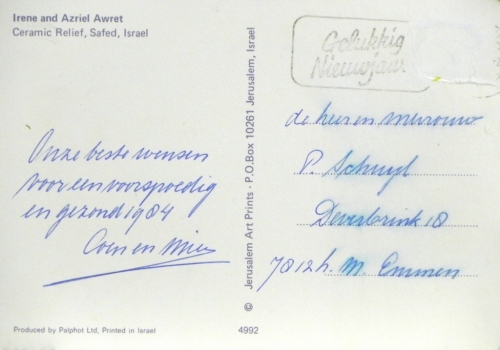 Irene and Azriel Awret
Ceramic Relief, Safed, Israel
Gelukkig
Nieuwjaar
Onze beste wensen
voor een voorspoedig
en gezond 1984
Coen en Mies
© Jerusalem Art Prints · P.O.Box 10261 Jerusalem, Israel
de heer en mevrouw
P. Schuyl
18
7812h. M. Emmen
Produced by Palphot Ltd, Printed in Israel
4992